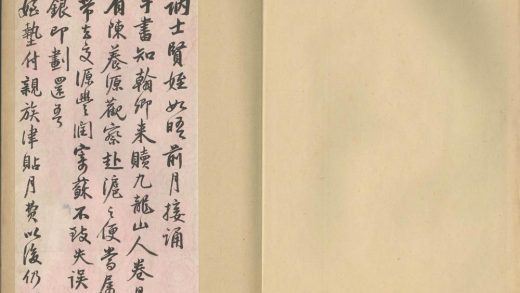 訥士賢姪如晤前月接誦
手書知翰卿来贖九龍山人卷
有陳養源觀察赴滬之便當屬
帶去交源豐潤寄蘇不致失誤
銀即劃還吾
姪墊付親族津貼月費以後仍